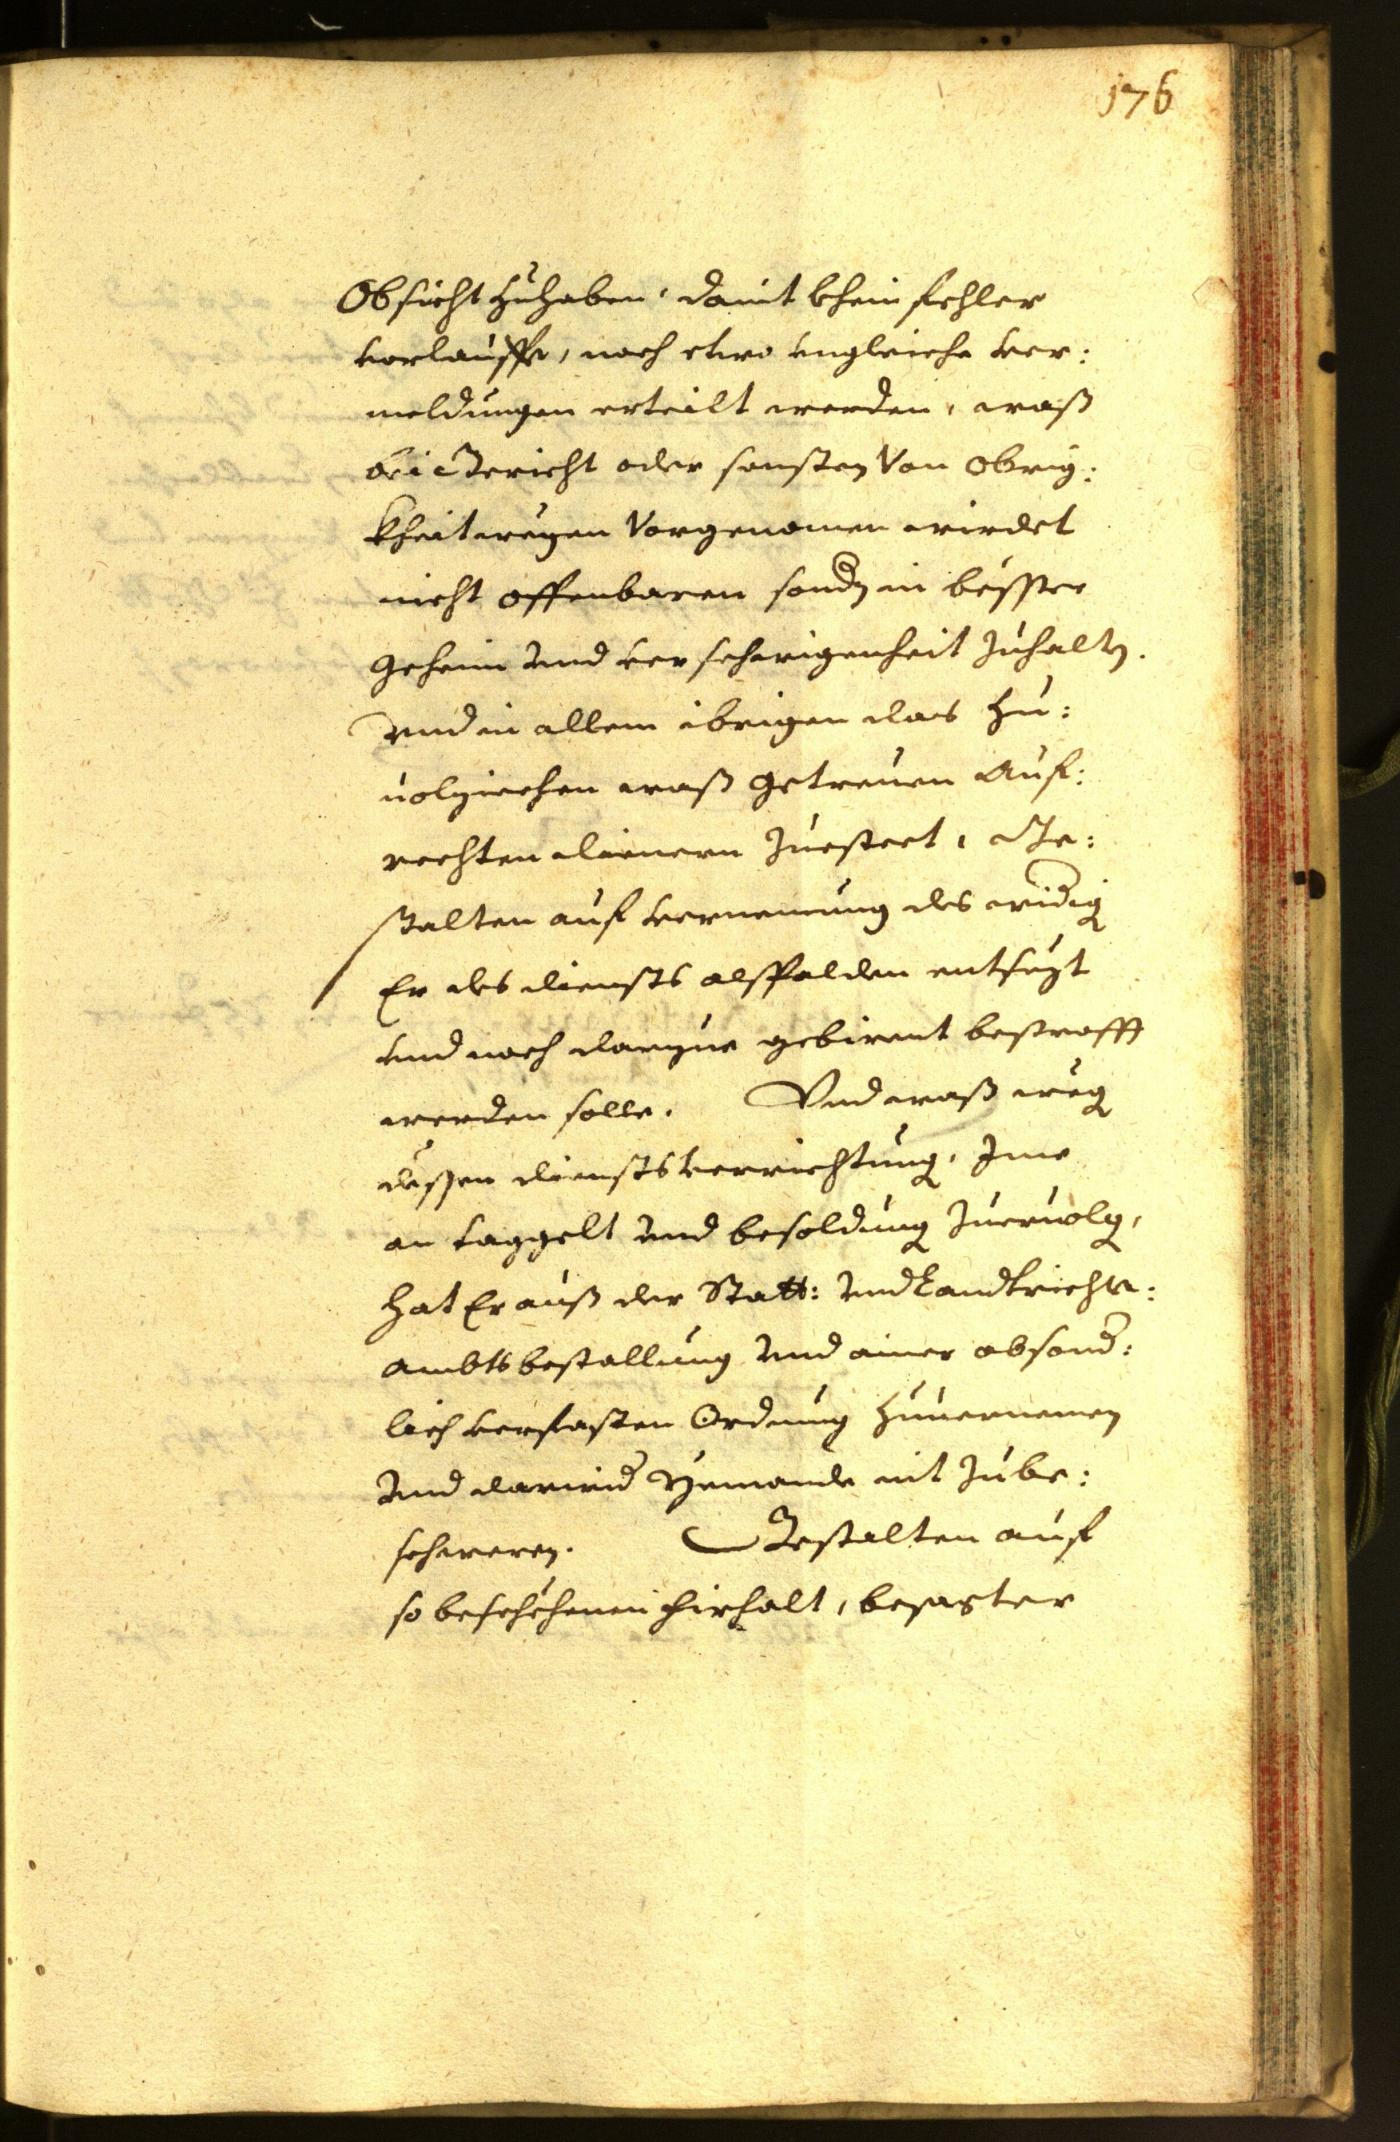 176
Obsicht zuhaben, damit khein fehler
vorlauffe, noch etwo ungleiche ver:
meldungen erteilt werden, waß
bei Gericht oder sonsten Von Obrig:
kheit wegen Vorgenomen wirdet
nicht offenbaren sondern in bësster
geheim und verschwigenheit zuhalten.
Und in allem ibrigen das zu:
uolziechen waß getreuen Auf:
rechten dienern zuesteet, Ge:
stalten auf vernemung des widrig
Er des diensts alßpalden entsezt
und noch darzue gebirent bestrafft
werden solle. Und waß weg
dessen dienstsverrichtung, Ime
an taggelt und besoldung zueruolg,
hat Er auß der Statt: und Landtrichter:
ambtsbestallung und ainer absond:
lich verfasten Ordnung zuuernemen
und darwid Yemande nit zube:
schweren. Gestalten auf
so beschëhenen firhalt, besagter